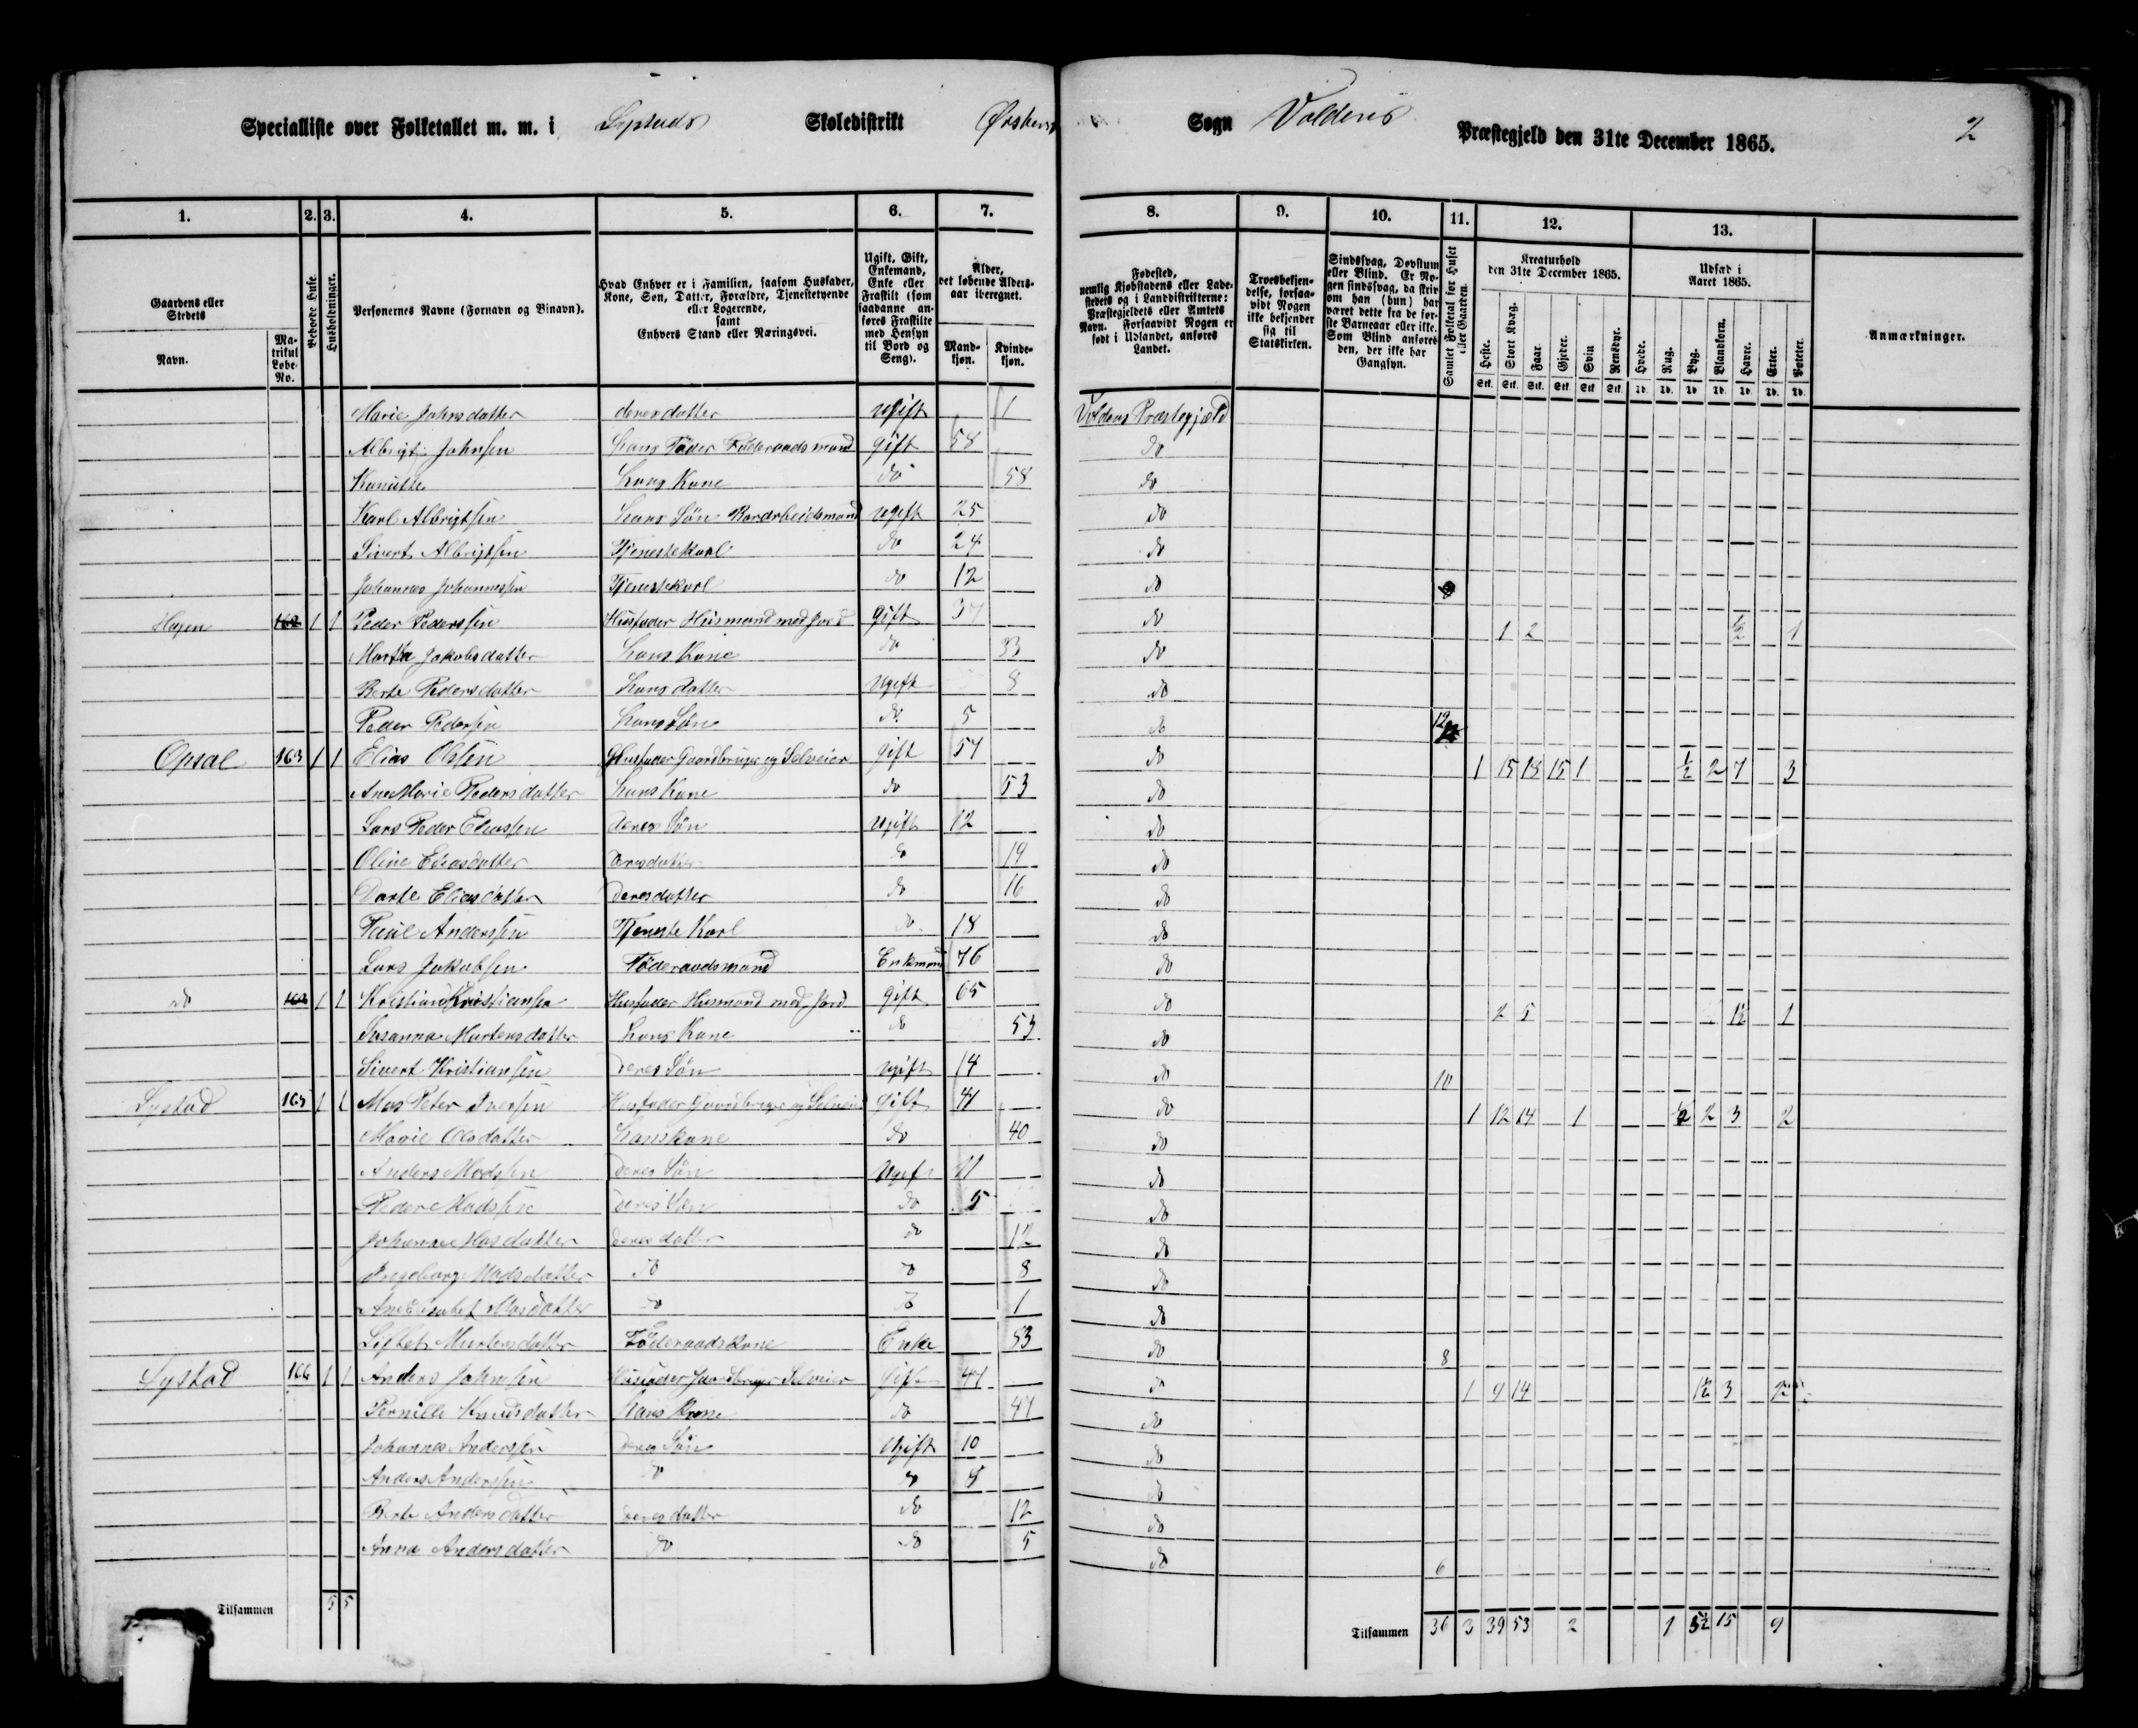 Specialliste over Folketallet m. m. i Systads Skoledistrikt Ørstens Sogn Voldens Præstegjeld den 31te December 1865. 2
1. 2. 3. 4. 5. 6. 7. 8. 9. 10. 11. 12. 13.
Gaardens eller Stedets
Navn.
Matrikul Løbe-No.
Beboede Huse.
Husholdninger.
Personernes Navne (Fornavn og Binavn).
Hvad Enhver er i Familien, saasom Husfader, Kone, Søn, Datter, Forældre, Tjenestetyende eller Logerende, samt Enhvers Stand eller Næringsvei.
Ugift, Gift, Enkemand, Enke eller Fraskilt (som saadanne anføres Fraskilte med Hensyn til Bord og Seng).
Alder, det løbende Aldersaar iberegnet.
Mandkjøn. Kvindekjøn.
Fødested, nemlig Kjøbstadens eller Ladestedets og i Landdistrikterne: Præstegjeldets eller Amtets Navn. Forsaavidt Nogen er født i Udlandet, anføres Landet.
Troesbekjendelse, forsaavidt Nogen ikke bekjender sig til Statskirken.
Sindssvag, Døvstum eller Blind. Er Nogen sindssvag, da skriv om han (hun) har været dette fra de første Barneaar eller ikke. Som Blind anføres den, der ikke har Gangsyn.
Samlet Folketal for Huset eller Gaarden.
Kreaturhold den 31te December 1865.
Heste. Stort Kvæg. Faar. Gjeder. Svin Rensdyr.
Udsæd i Aaret 1865.
Hvede. Rug. Byg. Blandkorn. Havre. Erter. Poteter.
Anmærkninger.
Marie Johnsdatter deresdatter ugift 1 Voldens Præstegjæld
Albrigt Johnsen hans Fader Føderaadsmand gift 58 do
hans Kone do 58 do
Karl Albrigtsen hans Søn ugift 25 do
Sivert Albrigtsen Tjenestekarl do 24 do
Johannes Johannessen Tjenestekarl do 12 do
Hagen 162 1 1 Peder Pedersen Husfader Husmand med Jord gift 37 do 1 2 ½ 1
Marthe Jakobsdatter hans Kone do 33 do
Berte Pedersdatter hans datter ugift 8 do
Peder Pedersen hans Søn do 5 do 12
Opsal 163 1 1 Elias Olsen Husfader Gaardbruger og Selveier gift 57 do 1 15 18 15 1 ½ 2 7 3
Ane Marie Pedersdatter hans Kone do 53 do
Lars Peder Eliassen deres Søn ugift 12 do
Oline Eliasdatter deresdatter do 19 do
Dorte Eliasdatter deresdatter do 16 do
Paul Anderssen Tjeneste Karl do 18 do
Lars Jakobsen Føderaadsmand Enkemand 76 do
do 163 1 1 Kristian Kristiansen Husfader Husmand med Jord gift 65 do 2 5 1½ 1
Susanna Martensdatter hans Kone do 53 do
Sivert Kristiansen deres Søn ugift 14 do 10
Systad 165 1 1 Mas Peter Iversen Husfader Gaardbruger og Selveier gift 41 do 1 12 14 1 ½ 2 3 2
Marie Olsdatter hans kone do 40 do
Anders Madssen deres Søn ugift 11 do
Peder Madssen deres Søn do 5 do
Johanne Masdatter deresdatter do 12 do
Ingeborg Madsdatter do do 8 do
Ane Elisabet Masdatter do do 1 do
Lisbet Martensdatter Føderaadskone Enke 53 do 8
Systad 166 1 1 Anders Johnsen Husfader Gaardbruger Selveier gift 47 do 1 9 14 1½ 3
Pernille Knudsdatter hans Kone do 47 do
Johannes Anderssen deres Søn ugift 10 do
Anders Anderssen do do 8 do
Berte Andersdatter deresdatter do 12 do
Anna Andersdatter do do 5 do 6
Tilsammen 5 5 Tilsammen 36 3 39 53 2 1 5½ 15 9